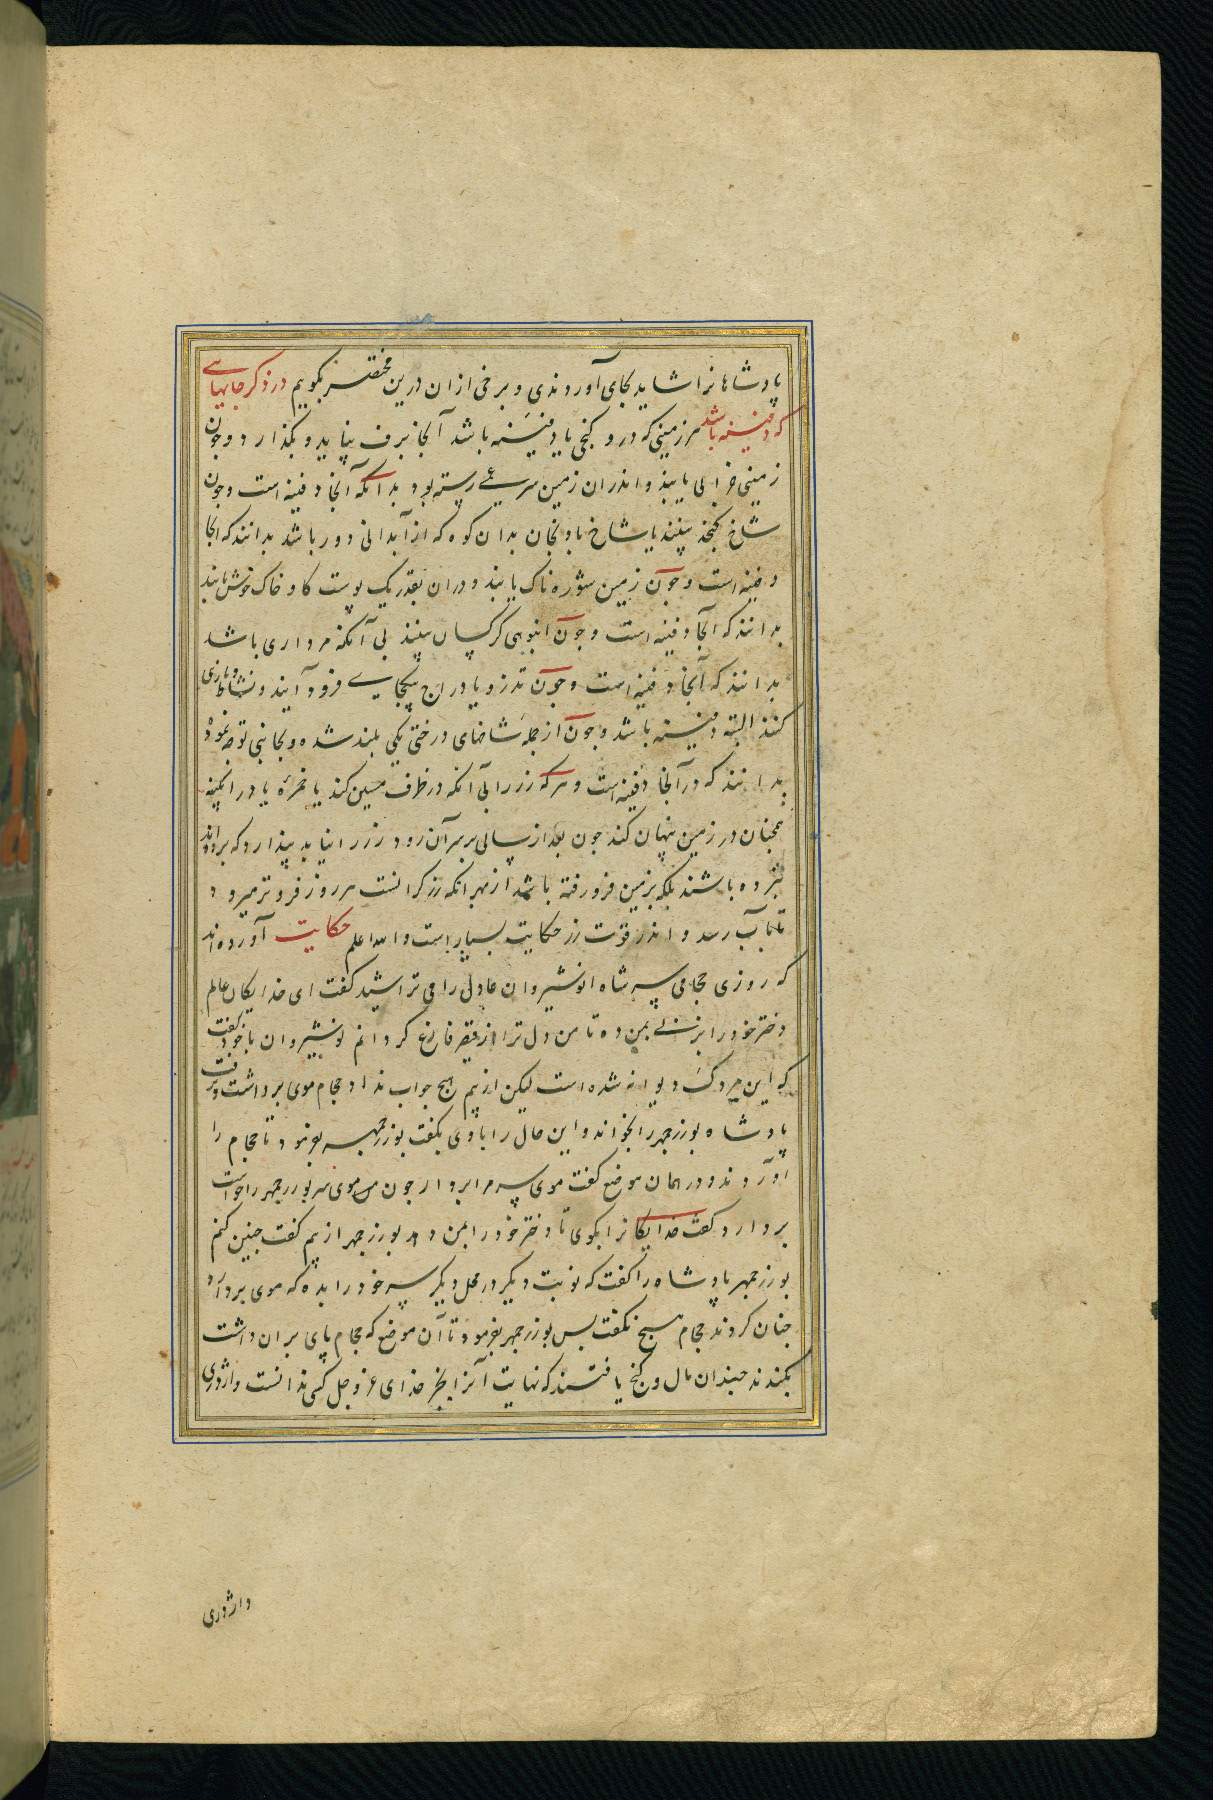 پادشاهانرا شاید بجای آوردندی و برخی ازان درین مختصر بگویم در ذکر جایهایی
که دفینه باشد هر زمینی که درو گنجی یا دفینه باشد آنجا برف نپاید و بگدازد و چون
زمینی خرابی یابند و اندران زمین رسته بود بدانکه آنجا دفینه است و چون
شاخ بینند یا شاخ بادنجان بدان کوه که از آبدانی دور باشد بدانند که انجا
دفینه است و چون زمین شوره ناک یابند و دران بقدر یک پوست کاو خاک خوش یابند
بدانند که انجا دفینه است و چون انبوهی کرکسان بینند بی آنکه مرداری باشد
بدانند که آنجا دفینه است و چون تدرو یا دراج بیکجایی فرود آیند و نشاط و بازی
کنند البته دفینه باشد و چون از جمله شاخهای درختی یکی بلند شده و بجانبی توجه نموده
بدانند که در آنجا دفینه است و هر که زر را بی آنکه در ظرف مسین کند یا خمره یا در ابگینه
همچنان در زمین پنهان کند چون بعد از سالی بر سر آن رود زر را نیابد پندارد که برده اند
نبرده باشند بلکه بزمین فرو رفته باشد از بهر انکه زر کرانست هر روز فروتر میرود
تا بآب رسد و اندر قوت زر حکایت بسیار است و الله اعلم حکایت آورده اند
که روزی حجامی سر شاه انوشیروان عادل را می تراشید کفت ای خدایکان عالم
دختر خود را بزنی بمن ده تا من دل ترا از قیصر فارغ کردانم نوشیروان با خود کفت
که این مردک دیوانه شده است لیکن از بیم هیچ جواب نداد حجام موی برداشت و برفت
پادشاه بوزرجمهر را بخواند و این حال را با وی بکفت بوزرجمهر بفرمود تا حجام را
اوردند و در همان موضع کفت موی سر مرا بردار چون موی سر بوزرجمهر را خواست
بردارد کفت خدایکانرا بکوی تا دختر خود را بمن دهد بوزرجمهر از بیم کفت چنین کنم
بوزرجمهر پادشاه را کفت که نوبت دیکر در محل دیکر سر خود را بده که موی بردارد
چنان کردند حجام هیچ نکفت پس بوزرجمهر بفرمود تا آن موضع که حجام پای بران داشت
بکندند چندان مال و کنج یافتند که نهایت آنرا بجز خدای عز و جل کسی ندانست و از دری
و از دری